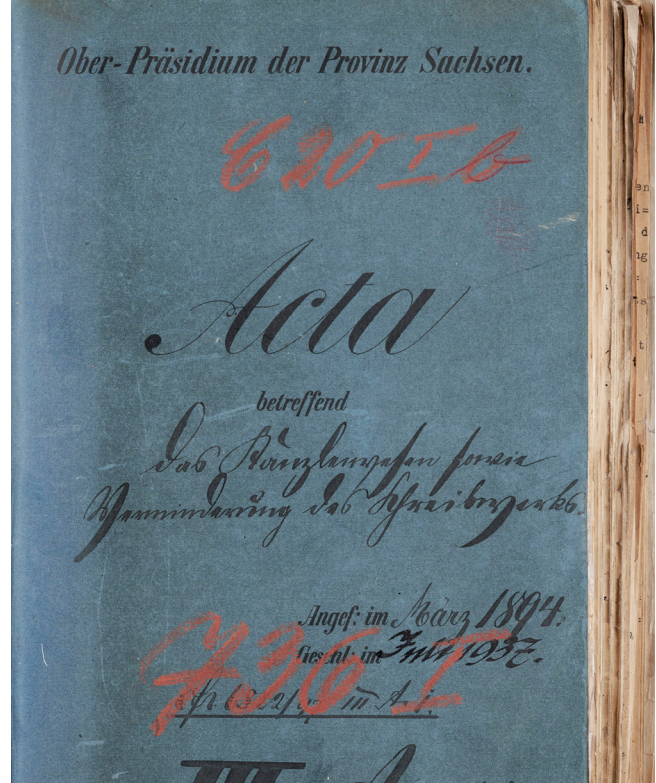 Ober-Präsidium der Provinz Sachsen.
C 20 I b
Acta
betreffend
das Kanzleiwesen sowie
Verminderung des Schreibwerks.
Angef: im März 1894.
Geschl: im Juli 1937.
736 I
III A. i.
III